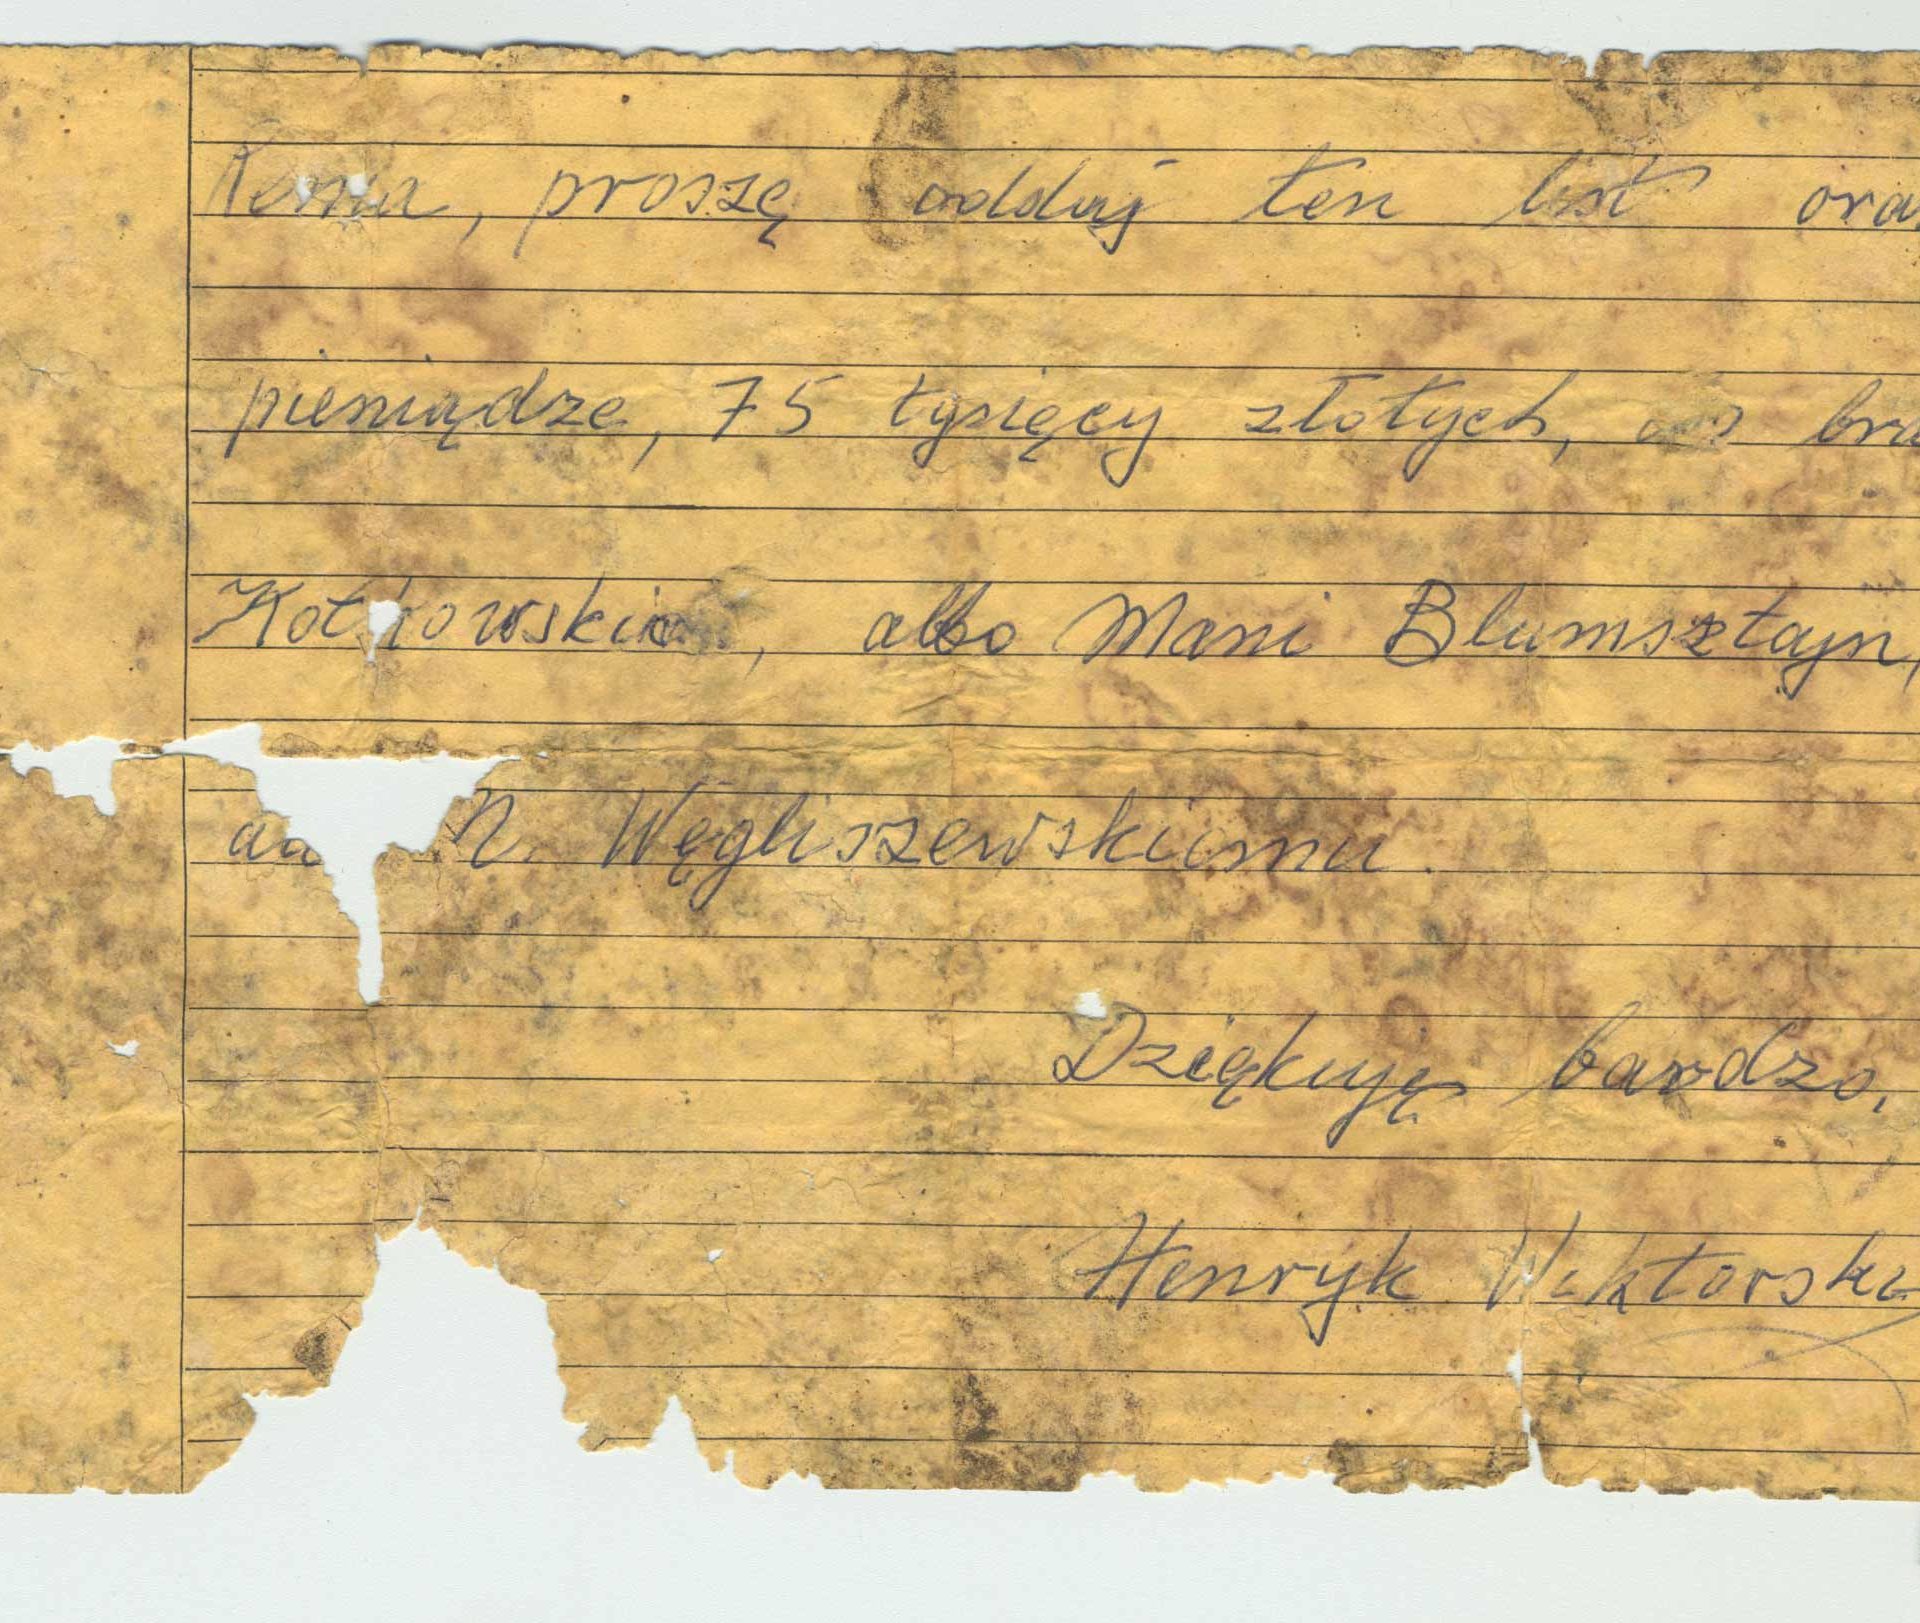 proszę oddaj ten list ora
pieniądze, 75 tysięcy złotych, bra
albo Mani Blumsztajn,
N. Węgliszewskiemu.
Dziękuję bardzo,
Henryk Wiktorski